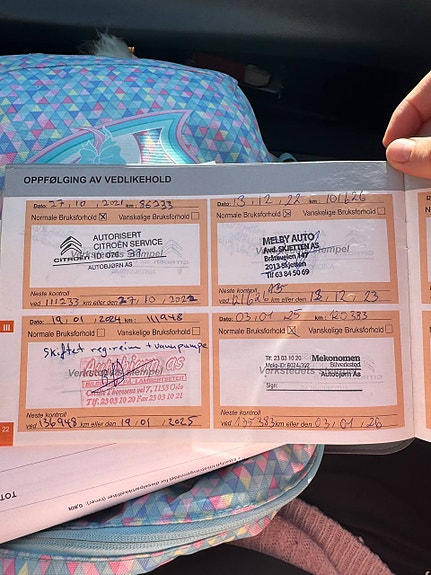 OPPFØLGING AV VEDLIKEHOLD
Dato: 27, 10, 2021 km: 86233
Normale Bruksforhold Vanskelige Bruksforhold
AUTORISERT
CITROËN SERVICE
CITROËN ID: 026
AUTOBJØRN AS
Neste kontroll
ved 111233 km eller den 27, 10, 2022
Dato: 13, 12, 22 km: 101626
Normale Bruksforhold Vanskelige Bruksforhold
MELBY AUTO
Avd. SKJETTEN AS
Bråteveien 147
2013 Skjetten
Tlf 63 84 50 69
Neste kontroll
km eller den 13, 12, 23
Dato: 19, 01, 2024 km: 111948
Normale Bruksforhold Vanskelige Bruksforhold
Skiftet reg.reim + vannpumpe
Verkstedets stempel
Autobjørn as
7, 1153 Oslo
Tlf. 23 03 10 20 Fax 23 03 10 21
Neste kontroll
ved 136948 km eller den 19, 01, 2025
Dato: 03, 01, 25 km: 120383
Normale Bruksforhold Vanskelige Bruksforhold
Tlf: 23 03 10 20 Mekonomen
Bilverksted
Verkstedets stempel
Autobjørn AS
Sign:
Neste kontroll
ved 135383 km eller den 03, 01, 26
III
22
TOT